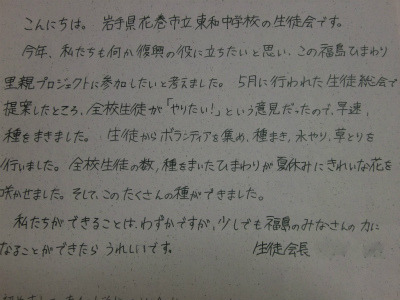 こんにちは。 岩手県花巻市立東和中学校の生徒会です。
今年、私たちも何か復興の役に立ちたいと思い、この福島ひまわり
里親プロジェクトに参加したいと考えました。 5月に行われた生徒総会で
提案したところ、全校生徒が「やりたい!」という意見だったので、早速、
種をまきました。 生徒からボランティアを集め、種まき、水やり、草とりを
行いました。 全校生徒の数、種をまいたひまわりが夏休みにきれいな花を
咲かせました。そして、このたくさんの種ができました。
私たちができることは、わずかですが、少しでも福島のみなさんの力に
なることができたら うれしいです。 生徒会長